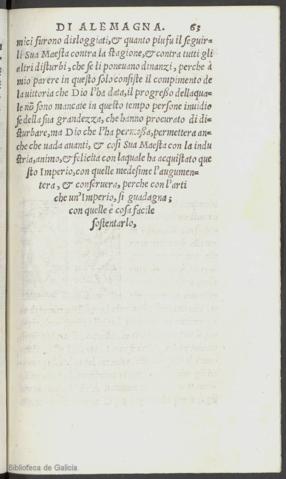 DI ALEMAGNA. 63
mici furono disloggiati, & quanto piu fu il seguir-
li Sua Maestà contra la stagione, & contra tutti gli
altri disturbi, che se li poneuano dinanzi, perche à
mio parere in questo solo consiste il compimento de
la uittoria che Dio l'ha data, il progresso della qua-
le nõ sono mancate in questo tempo persone inuidio
se della sua grandezza, che hanno procurato di di-
sturbare, ma Dio che l'ha permessa, permettera an-
che che uada auanti, & cosi Sua Maestà con la indu
stria, animo, & felicità con laquale ha acquistato que
sto Imperio, con quelle medesime l'augumen-
tera, & conseruera, perche con l'arti
che un'Imperio, si guadagna;
con quelle è cosa facile
sostentarlo,
Biblioteca de Galicia